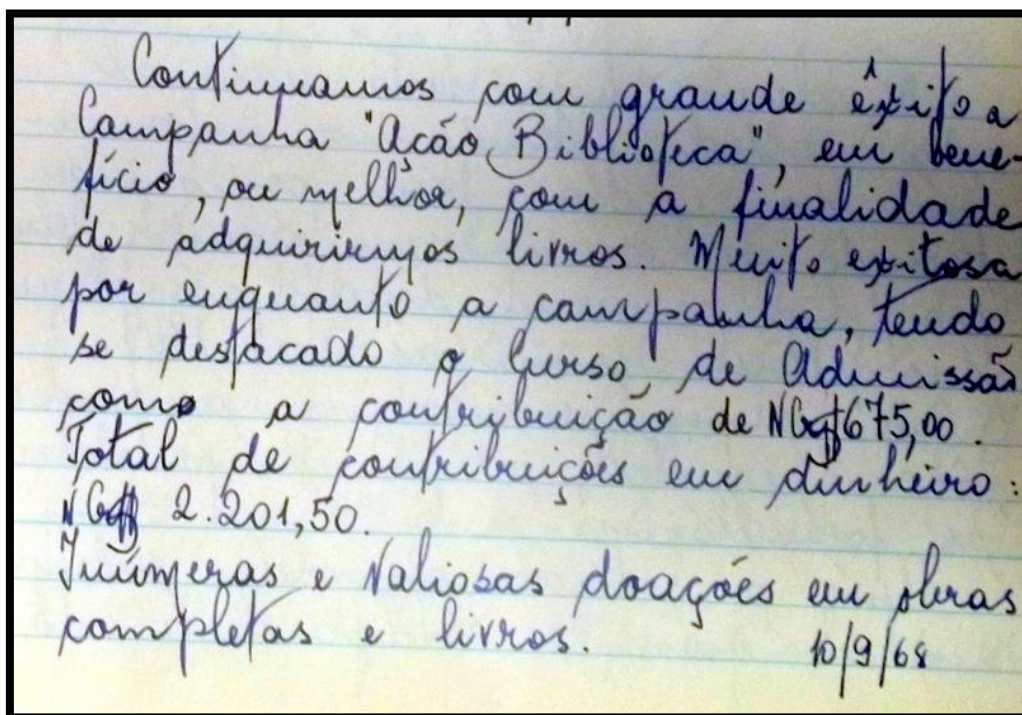 Continuamos com grande êxito a
Campanha "Ação Biblioteca", em bene-
fício, ou melhor, com a finalidade
de adquirirmos livros. Muito exitosa
por enquanto a campanha, tendo
se destacado o Curso de Admissão
como a contribuição de NCr$675,00.
Total de contribuições em dinheiro:
NCr$ 2.201,50.
Inúmeras e valiosas doações em obras
completas e livros. 10/9/68